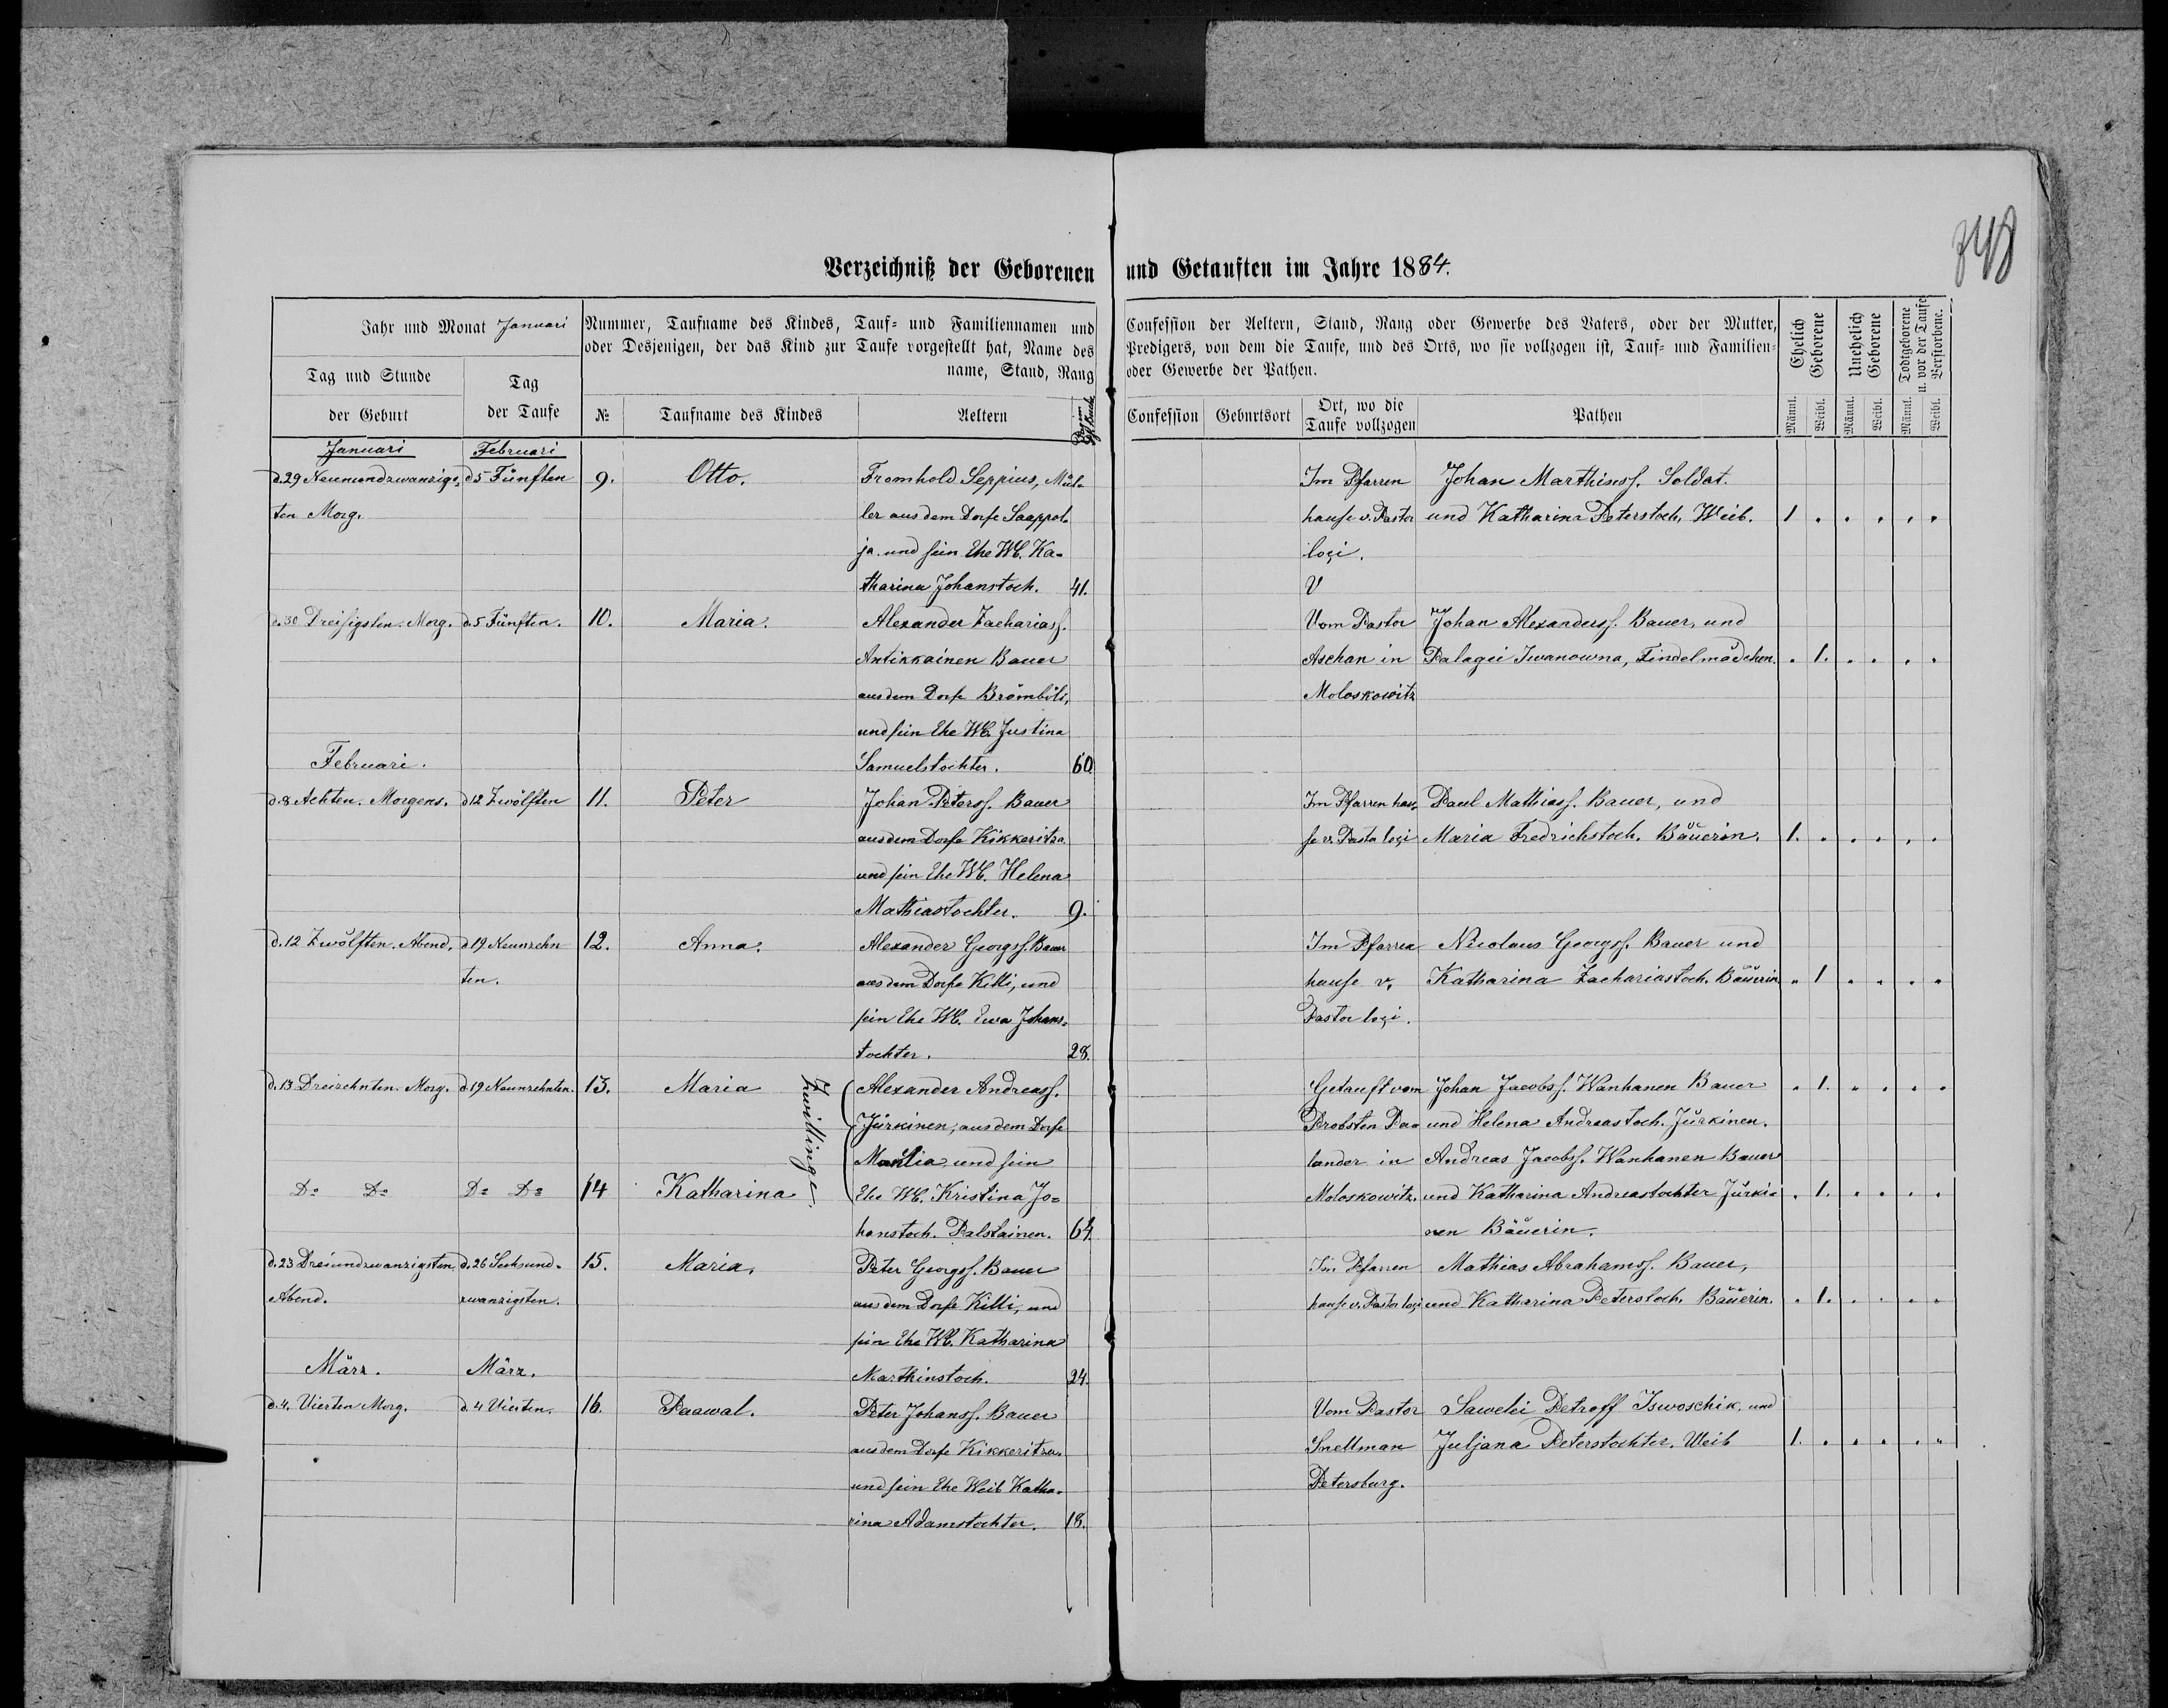 348
Verzeichniß der Geborenen und Getauften im Jahre 1884.
Jahr und Monat Januari
Tag und Stunde
der Geburt
Tag
der Taufe
Nummer, Taufname des Kindes, Tauf= und Familiennamen und
oder Desjenigen, der das Kind zur Taufe vorgestellt hat, Name des
name, Stand, Rang
№
Taufname des Kindes
Aeltern
Confession der Aeltern, Stand, Rang oder Gewerbe des Vaters, oder der Mutter,
Predigers, von dem die Taufe, und des Orts, wo sie vollzogen ist, Tauf= und Familien=
oder Gewerbe der Pathen.
Confession
Geburtsort
Ort, wo die
Taufe vollzogen
Pathen
Ehelich
Geborene
Unehelich
Geborene
Todtgeborene
u. vor der Taufe
Verstorbene.
Männl.
Weibl.
Männl.
Weibl.
Männl.
Weibl.
Januari
Februari
d. 29 Neunundzwanzigs=
ten Morg.
d 5 Fünften
9.
Otto.
Fromhold Seppius, Mül=
ler aus dem Dorfe Saappol=
ja. und sein Ehe Wb. Ka=
tharina Johanstoch. 41.
Im Pfarren
hause v. Pastor
loci.
V
Johan Marthinss. Soldat.
und Katharina Peterstoch. Weib.
1 . . . . .
d. 30 Dreisigsten. Morg.
d. 5 Fünften.
10.
Maria.
Alexander Zachariass.
Antikkainen Bauer
aus dem Dorfe Brömböli,
und sein Ehe Wb. Justina
Samuelstochter. 60
Vom Pastor
Aschan in
Moloskowitz
Johan Alexanderss. Bauer, und
Palagei Iwanowna, Findelmädchen.
. 1. . . . .
Februari.
d. 8 Achten. Morgens.
d 12 Zwölften
11.
Peter
Johan Peterss. Bauer
aus dem Dorfe Kikkeritza
und sein Ehe Wb. Helena
Mathiastochter. 9.
Im Pfarren hau=
se v. Pasto loci
Paul Mathiass. Bauer, und
Maria Fredrichstoch. Bäuerin.
1. . . . . .
d. 12 Zwölften. Abend.
d 19 Neunzehn
ten.
12.
Anna.
Alexander Georgss. Bauer
aus dem Dorfe Killi, und
sein Ehe Wb. Ewa Johans=
tochter. 28.
Im Pfarren
hause v.
Pastor loci.
Nicolaus Georgss. Bauer und
Katharina Zachariastoch. Bäuerin
. 1 . . . .
d. 13 Dreizehnten. Morg.
d. 19 Neunzehnten.
13.
Maria
Zwillinge.
Alexander Andreass.
Jürkinen, aus dem Dorfe
und sein
Ehe Wb. Kristina Jo=
hanstoch. Palstainen. 64
Getauft vom
Probsten Pa=
lander in
Moloskowitz.
Johan Jacobss. Wanhanen Bauer
und Helena Andreastoch. Jürkinen.
. 1. . . . .
Do Do
Do Do
14
Katharina
Andreas Jacobss. Wanhanen Bauer
und Katharina Andreastochter Jürki=
nen Bäuerin.
. 1. . . . .
d. 23 Dreiundzwanzigsten
Abend.
d. 26 Sechsund=
zwanzigsten.
15.
Maria.
Peter Georgss. Bauer
aus dem Dorfe Killi, und
sein Ehe Wb. Katharina
Marthinstoch. 24.
Im Pfarren
hause v. Pastor loci
Mathias Abrahamss. Bauer,
und Katharina Peterstoch. Bäuerin.
. 1. . . . .
März.
März.
d. 4. Vierten Morg.
d. 4 Vierten.
16.
Paawal.
Peter Johanss. Bauer
aus dem Dorfe Kikkeritza.
und sein Ehe Weib Katha=
rina Adamstochter. 18.
Vom Pastor
Snellman
Petersburg.
Sawelei Petroff Iswoschik. und
Juljana Peterstochter. Weib
1. . . . . .